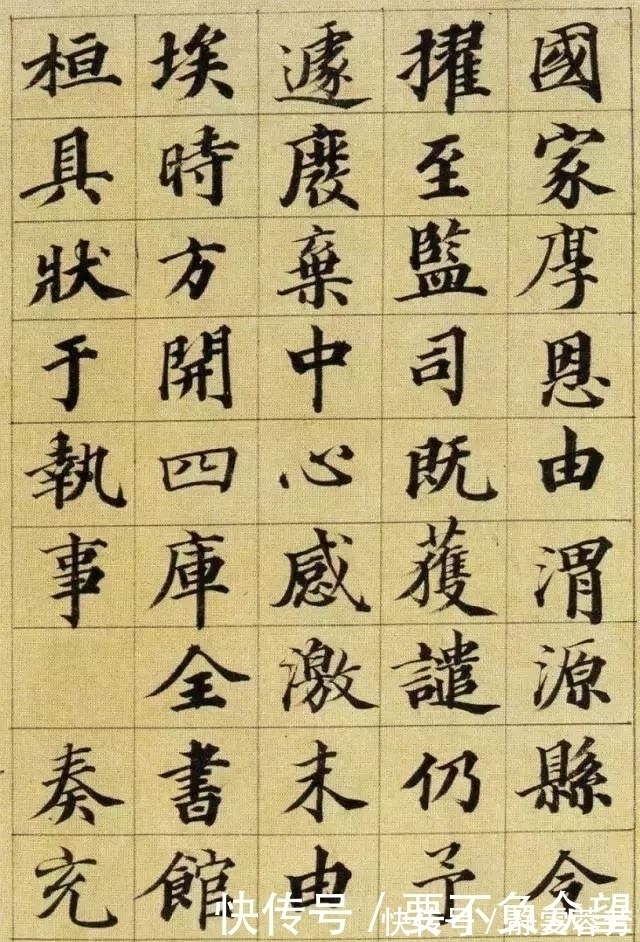 國家厚恩由渭源縣令
擢至監司既獲譴仍予
遽廢棄中心感激末由
埃時方開四庫全書館
桓具狀于執事 奏充
快传号 /
快传号 /